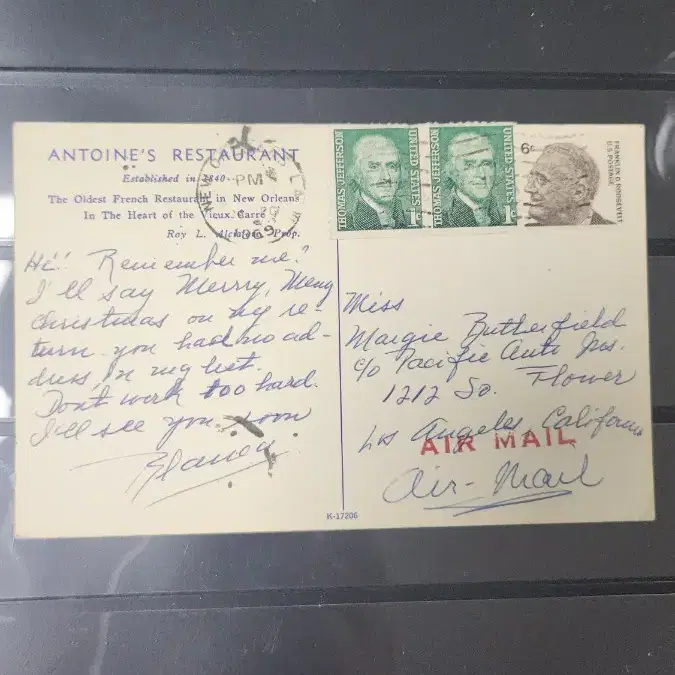 ANTOINE'S RESTAURANT
Established in 1840
The Oldest French Restaurant in New Orleans
In The Heart of the Vieux Carré
Roy L. Alciatore, Prop.
NEW ORLEANS LA
PM
1969
THOMAS JEFFERSON
UNITED STATES
1c
THOMAS JEFFERSON
UNITED STATES
1c
6c
FRANKLIN D. ROOSEVELT
U.S. POSTAGE
Hi! Remember me?
I'll say Merry, Merry
Christmas on my re-
turn. you had no ad-
dress, in my list.
Don't work too hard.
I'll see you soon
Miss
Margie Butterfield
c/o Pacific Auto Ins.
1212 So. Flower
Los Angeles, California
AIR MAIL
Air-Mail
K-17206